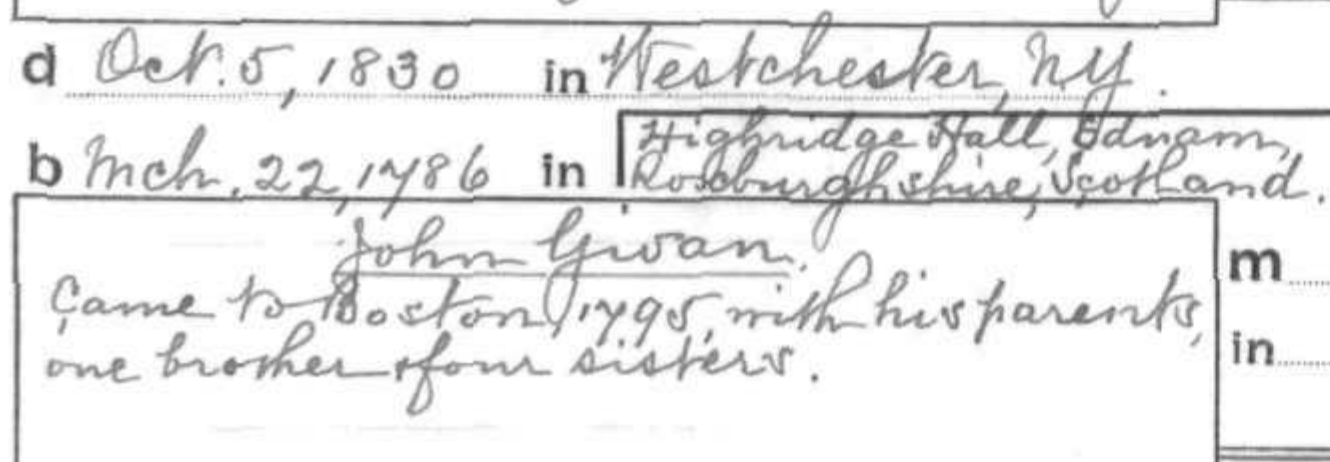 d Oct. 5, 1830 in Westchester, NY.
b Mch. 22, 1786 in Highridge Hall, Ednam,
Roxburghshire, Scotland.
John Givan.
m
Came to Boston, 1795, with his parents,
one brother & four sisters.
in